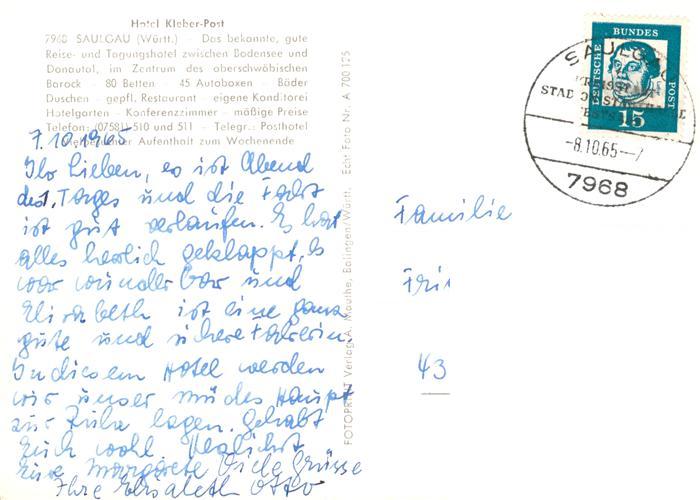 Hotel Kleber-Post
7968 SAULGAU (Württ.) - Das bekannte, gute
Reise- und Tagungshotel zwischen Bodensee und
Donautal, im Zentrum des oberschwäbischen
Barock - 80 Betten - 45 Autoboxen - Bäder
Duschen - gepfl. Restaurant - eigene Konditorei
Hotelgarten - Konferenzzimmer - mäßige Preise
Telefon: (07581) 510 und 511 - Telegr.: Posthotel
Aufenthalt zum Wochenende
7.10.1965
Ihr Lieben, es ist Abend
des Tages und die Fahrt
ist gut verlaufen. Es hat
alles herrlich geklappt, es
war wunderbar und
Elisabeth ist eine ganz
gute und sichere Fahrerin.
In diesem Hotel werden
wir unser müdes Haupt
zur Ruhe legen. Gehabt
Euch wohl Herzlichst
Eure Margarete Viele Grüsse
Ihre Elisabeth Otto
FOTOPRINT Verlag A. Mauthe, Balingen/Württ. Echt Foto Nr. A 700 175
Familie
43
DEUTSCHE BUNDES POST
15
SAULGAU
-8.10.65--7
7968